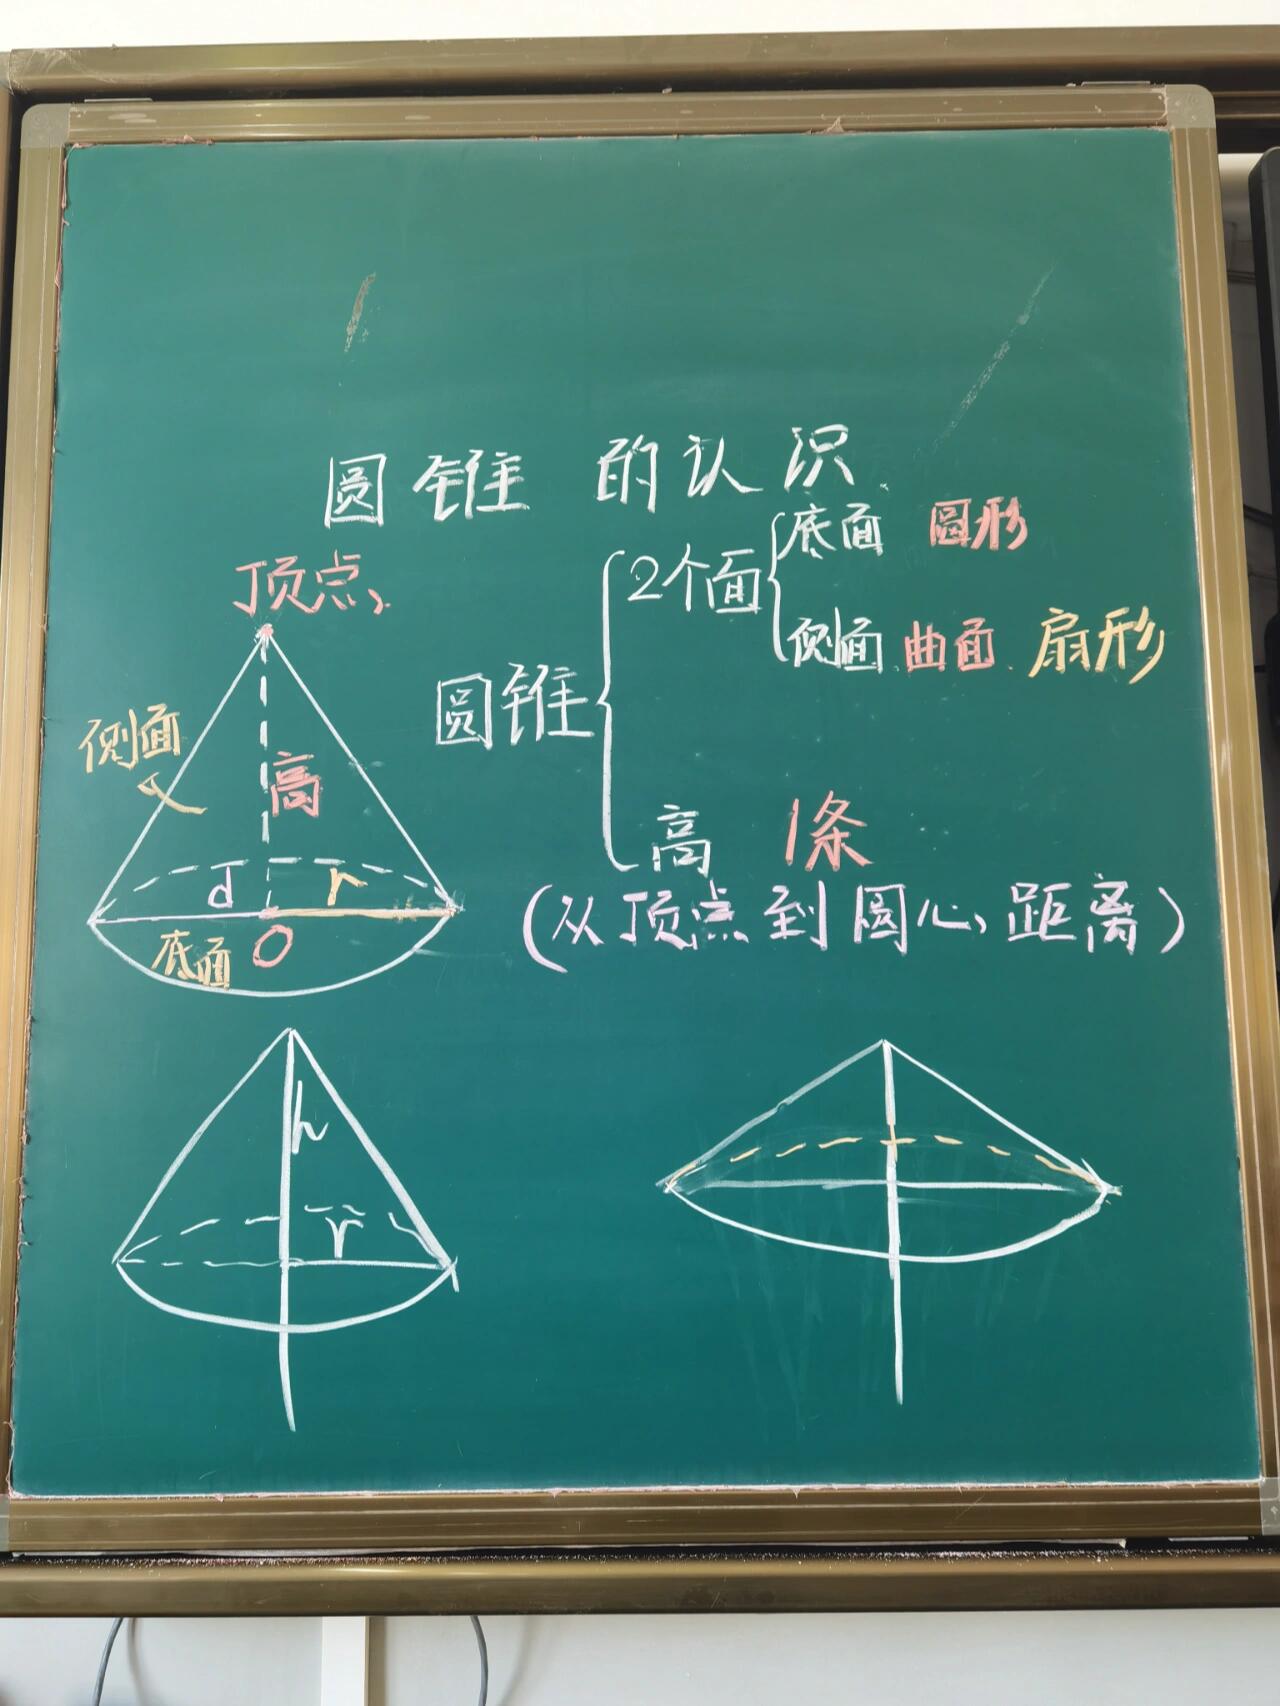 圆锥的认识
顶点
2个面 底面 圆形
侧面 曲面 扇形
圆锥
侧面
高
高 1条
d r
(从顶点到圆心距离)
底面 O
h
r